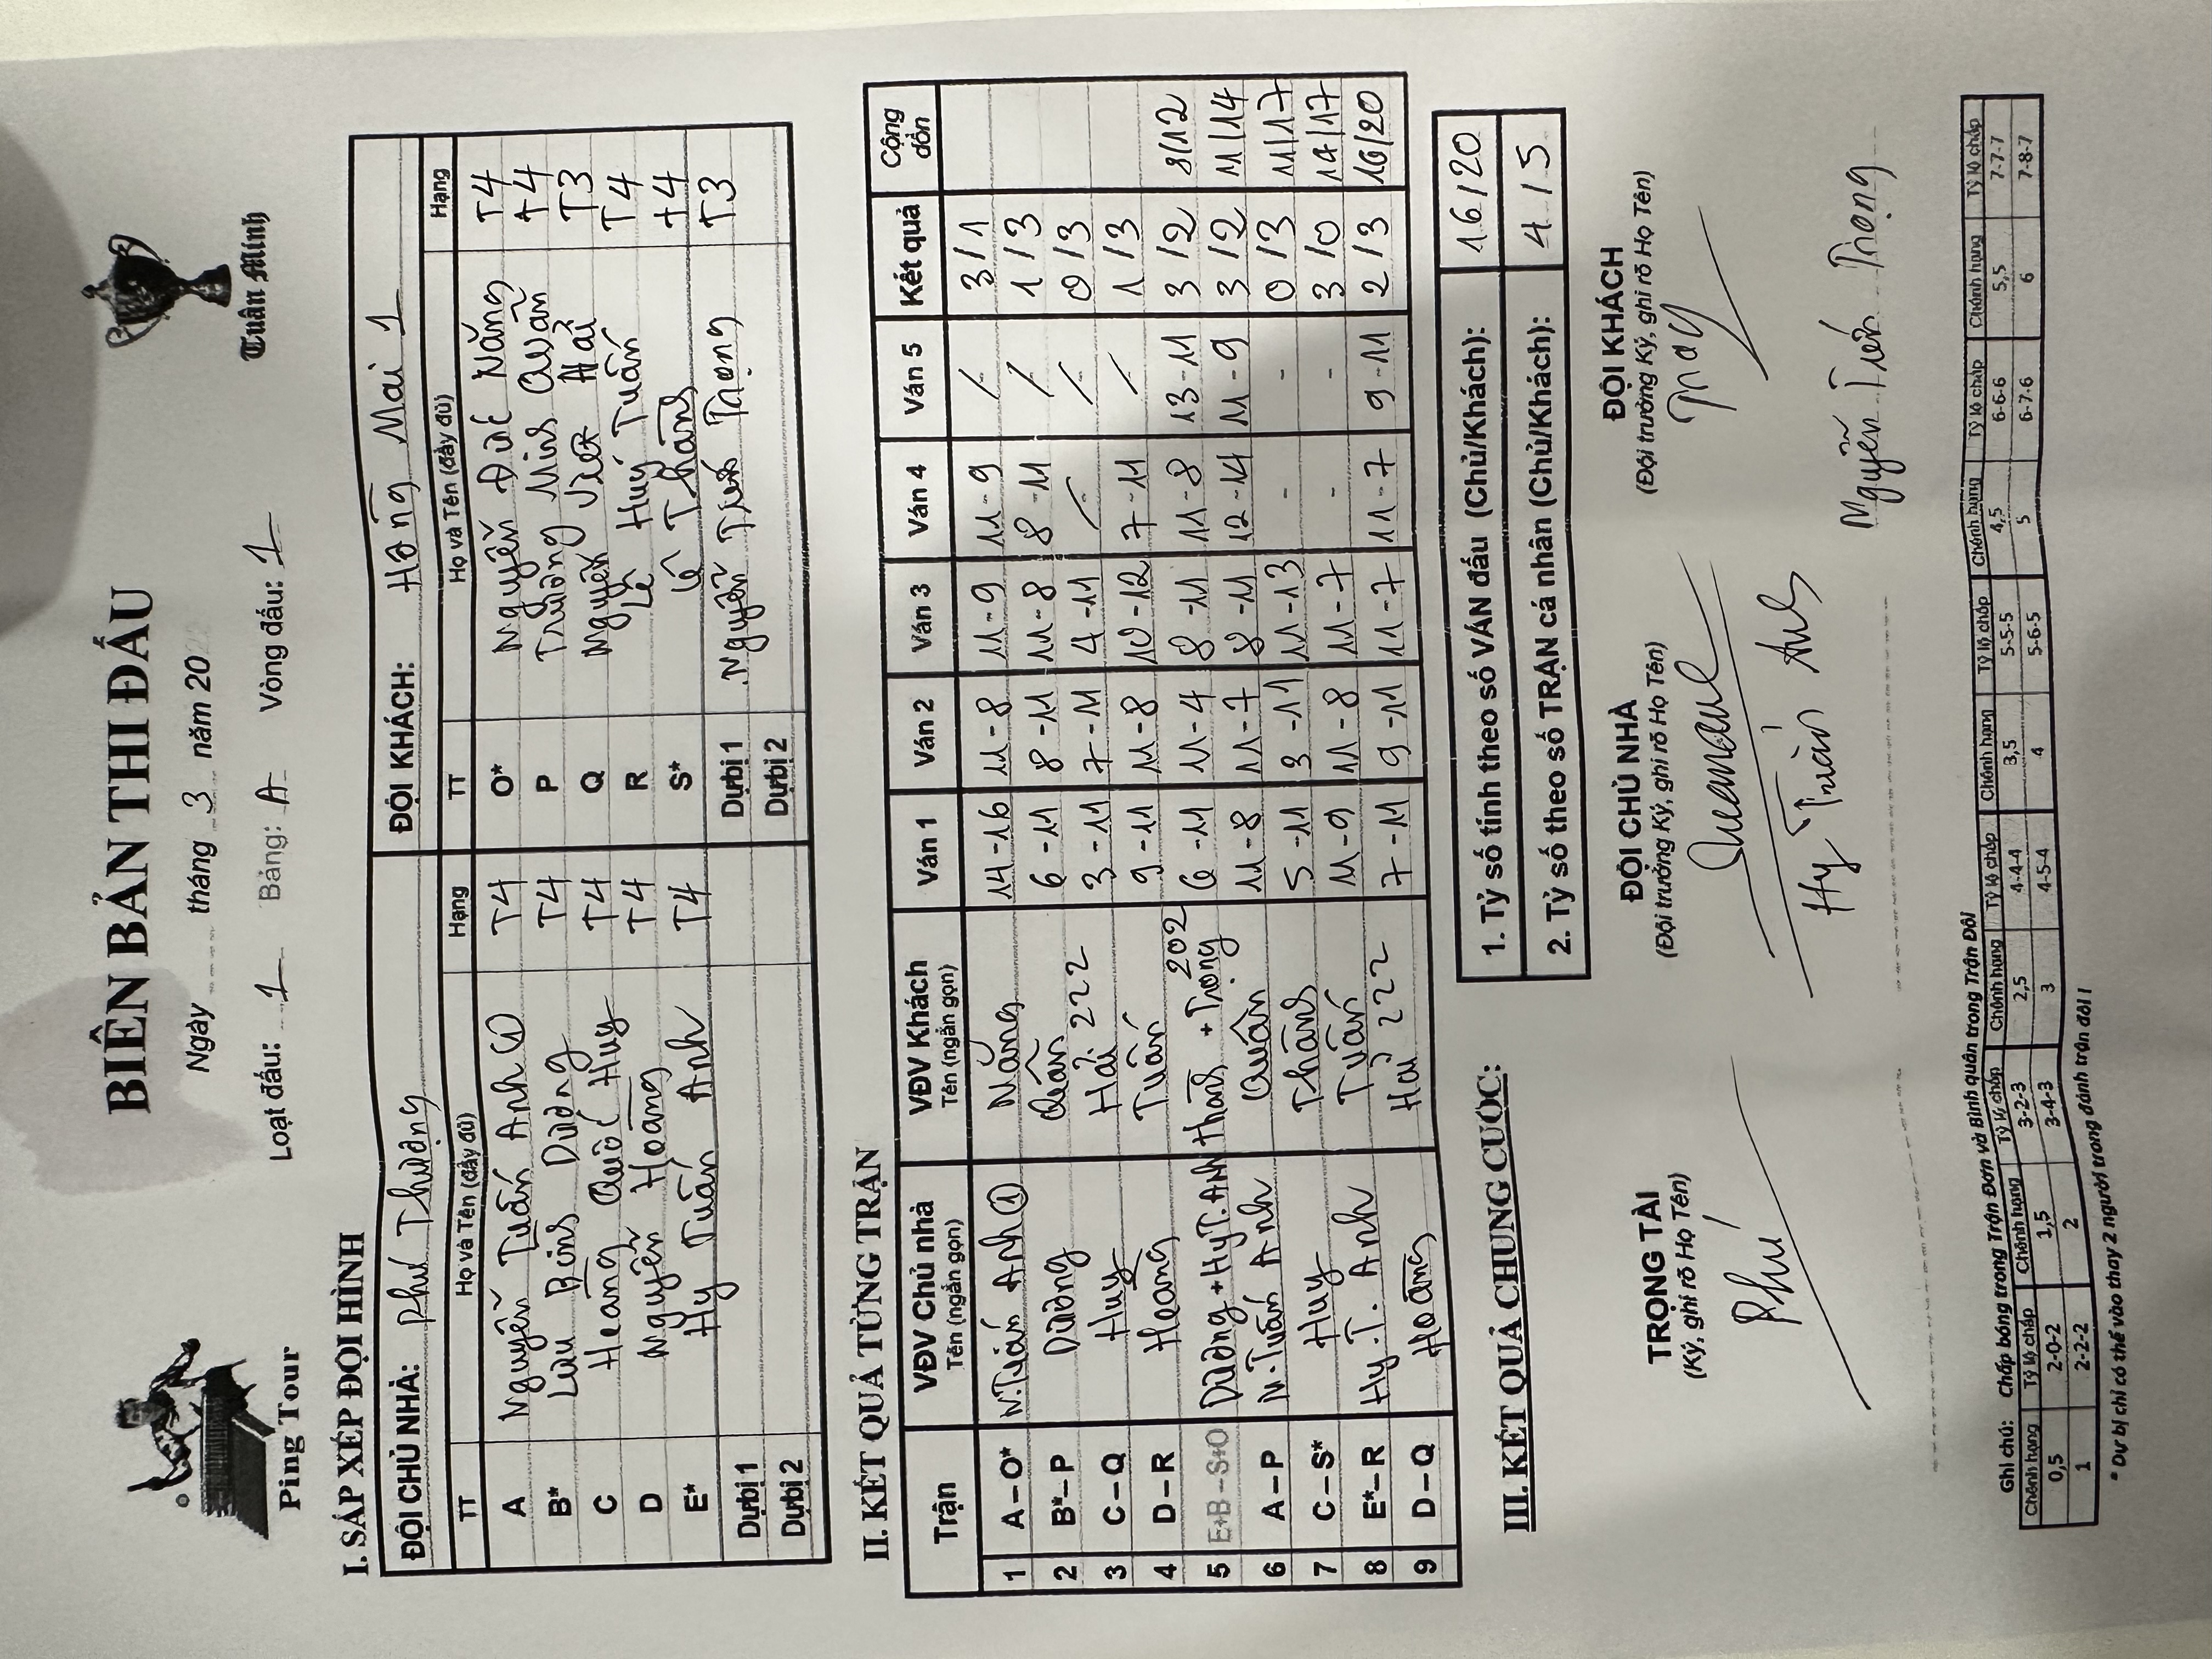 Ping Tour
BIÊN BẢN THI ĐẤU
Tuấn Minh
Ngày tháng 3 năm 20
Loạt đấu: 1 Bảng: A Vòng đấu: 1
I. SẮP XẾP ĐỘI HÌNH
ĐỘI CHỦ NHÀ: Phú Thượng ĐỘI KHÁCH: Hoàng Mai 1
TT Họ và Tên (đầy đủ) Hạng TT Họ và Tên (đầy đủ) Hạng
A Nguyễn Tuấn Anh (1) T4 O* Nguyễn Đức Năng T4
B* Lưu Bình Dương T4 P Trương Minh Quân T4
C Hoàng Quốc Huy T4 Q Nguyễn Việt Hải T3
D Nguyễn Hoàng T4 R Lê Huy Tuấn T4
E* Hy Tuấn Anh T4 S* Lê T Thắng T4
Dự bị 1 Dự bị 1 Nguyễn Tiến Trọng T3
Dự bị 2 Dự bị 2
II. KẾT QUẢ TỪNG TRẬN
Trận VĐV Chủ nhà Tên (ngắn gọn) VĐV Khách Tên (ngắn gọn) Ván 1 Ván 2 Ván 3 Ván 4 Ván 5 Kết quả Cộng dồn
1 A – O* N.Tuấn Anh (1) Năng 14-16 11-8 11-9 11-9 / 3/1
2 B* – P Dương Quân 6-11 8-11 11-8 8-11 / 1/3
3 C – Q Huy Hải 222 3-11 7-11 4-11 / / 0/3
4 D – R Hoàng Tuấn 9-11 11-8 10-12 7-11 / 1/3
5 E+B – S+O Dương + Hy T. Anh Thắng + Trọng 202 6-11 11-4 8-11 11-8 13-11 3/2 8/12
6 A – P N.Tuấn Anh Quân 11-8 11-7 8-11 12-14 11-9 3/2 11/14
7 C – S* Huy Thắng 5-11 3-11 11-13 - - 0/3 11/17
8 E* – R Hy.T. Anh Tuấn 11-9 11-8 11-7 - - 3/0 14/17
9 D – Q Hoàng Hải 222 7-11 9-11 11-7 11-7 9-11 2/3 16/20
III. KẾT QUẢ CHUNG CUỘC:
1. Tỷ số tính theo số VÁN đấu (Chủ/Khách): 16/20
2. Tỷ số theo số TRẬN cá nhân (Chủ/Khách): 4/5
TRỌNG TÀI ĐỘI CHỦ NHÀ ĐỘI KHÁCH
(Ký, ghi rõ Họ Tên) (Đội trưởng Ký, ghi rõ Họ Tên) (Đội trưởng Ký, ghi rõ Họ Tên)
Phú
Hy Tuấn Anh
Nguyễn Tiến Trọng
Ghi chú: Chấp bóng trong Trận Đơn và Bình quân trong Trận Đôi
Chênh hạng Tỷ lệ chấp Chênh hạng Tỷ lệ chấp Chênh hạng Tỷ lệ chấp Chênh hạng Tỷ lệ chấp Chênh hạng Tỷ lệ chấp Chênh hạng Tỷ lệ chấp
0,5 2-0-2 1,5 3-2-3 2,5 4-4-4 3,5 5-5-5 4,5 6-6-6 5,5 7-7-7
1 2-2-2 2 3-4-3 3 4-5-4 4 5-6-5 5 6-7-6 6 7-8-7
* Dự bị chỉ có thể vào thay 2 người trong đánh trận đôi !